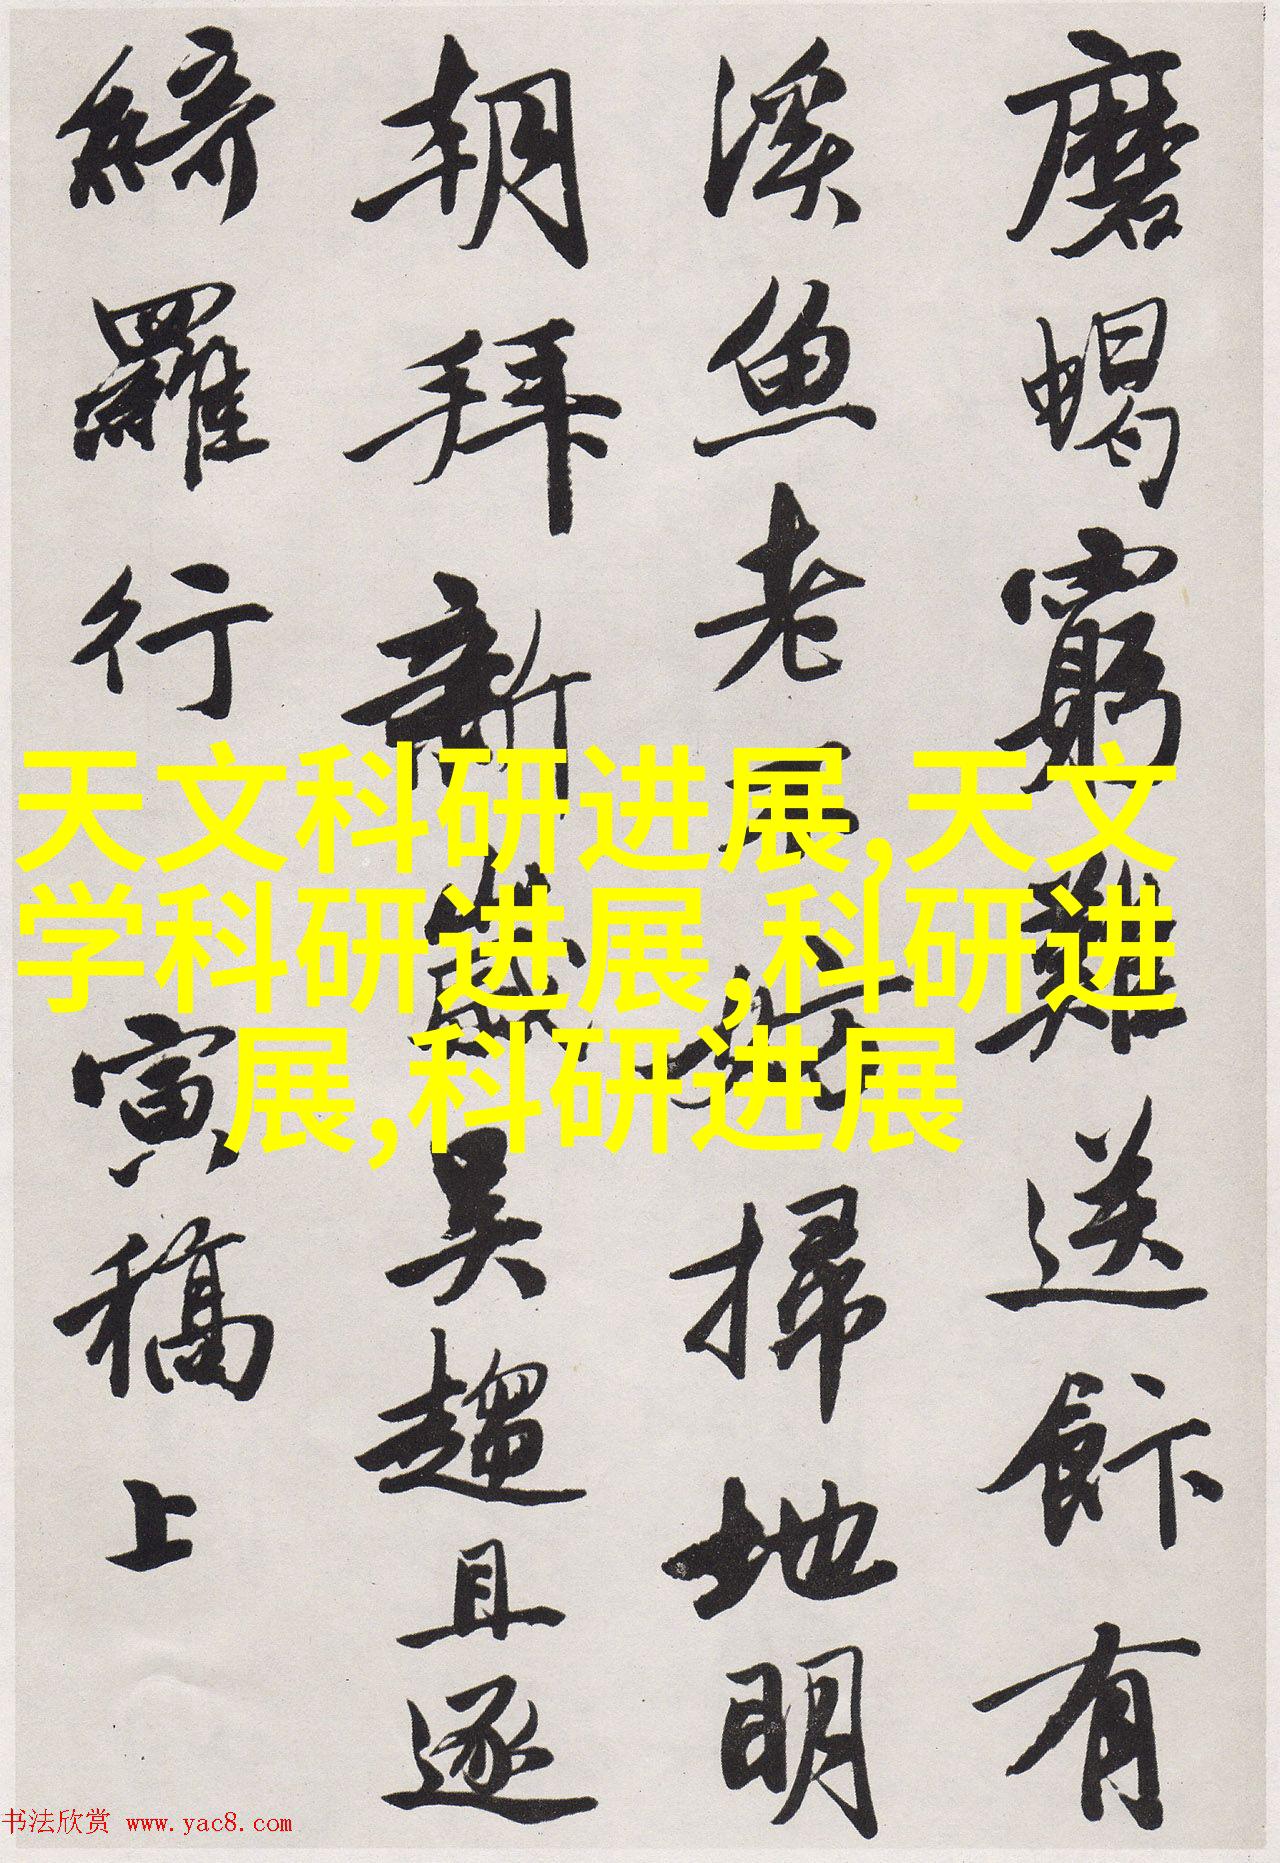 磨蝎窮難送餅有
溪魚老不妨掃地明
朝拜新歲吳趨且逐
綺羅行
寅稿上
天文科研进展,天文
学科研进展,科研进
展,科研进展
书法欣赏 www.yac8.com